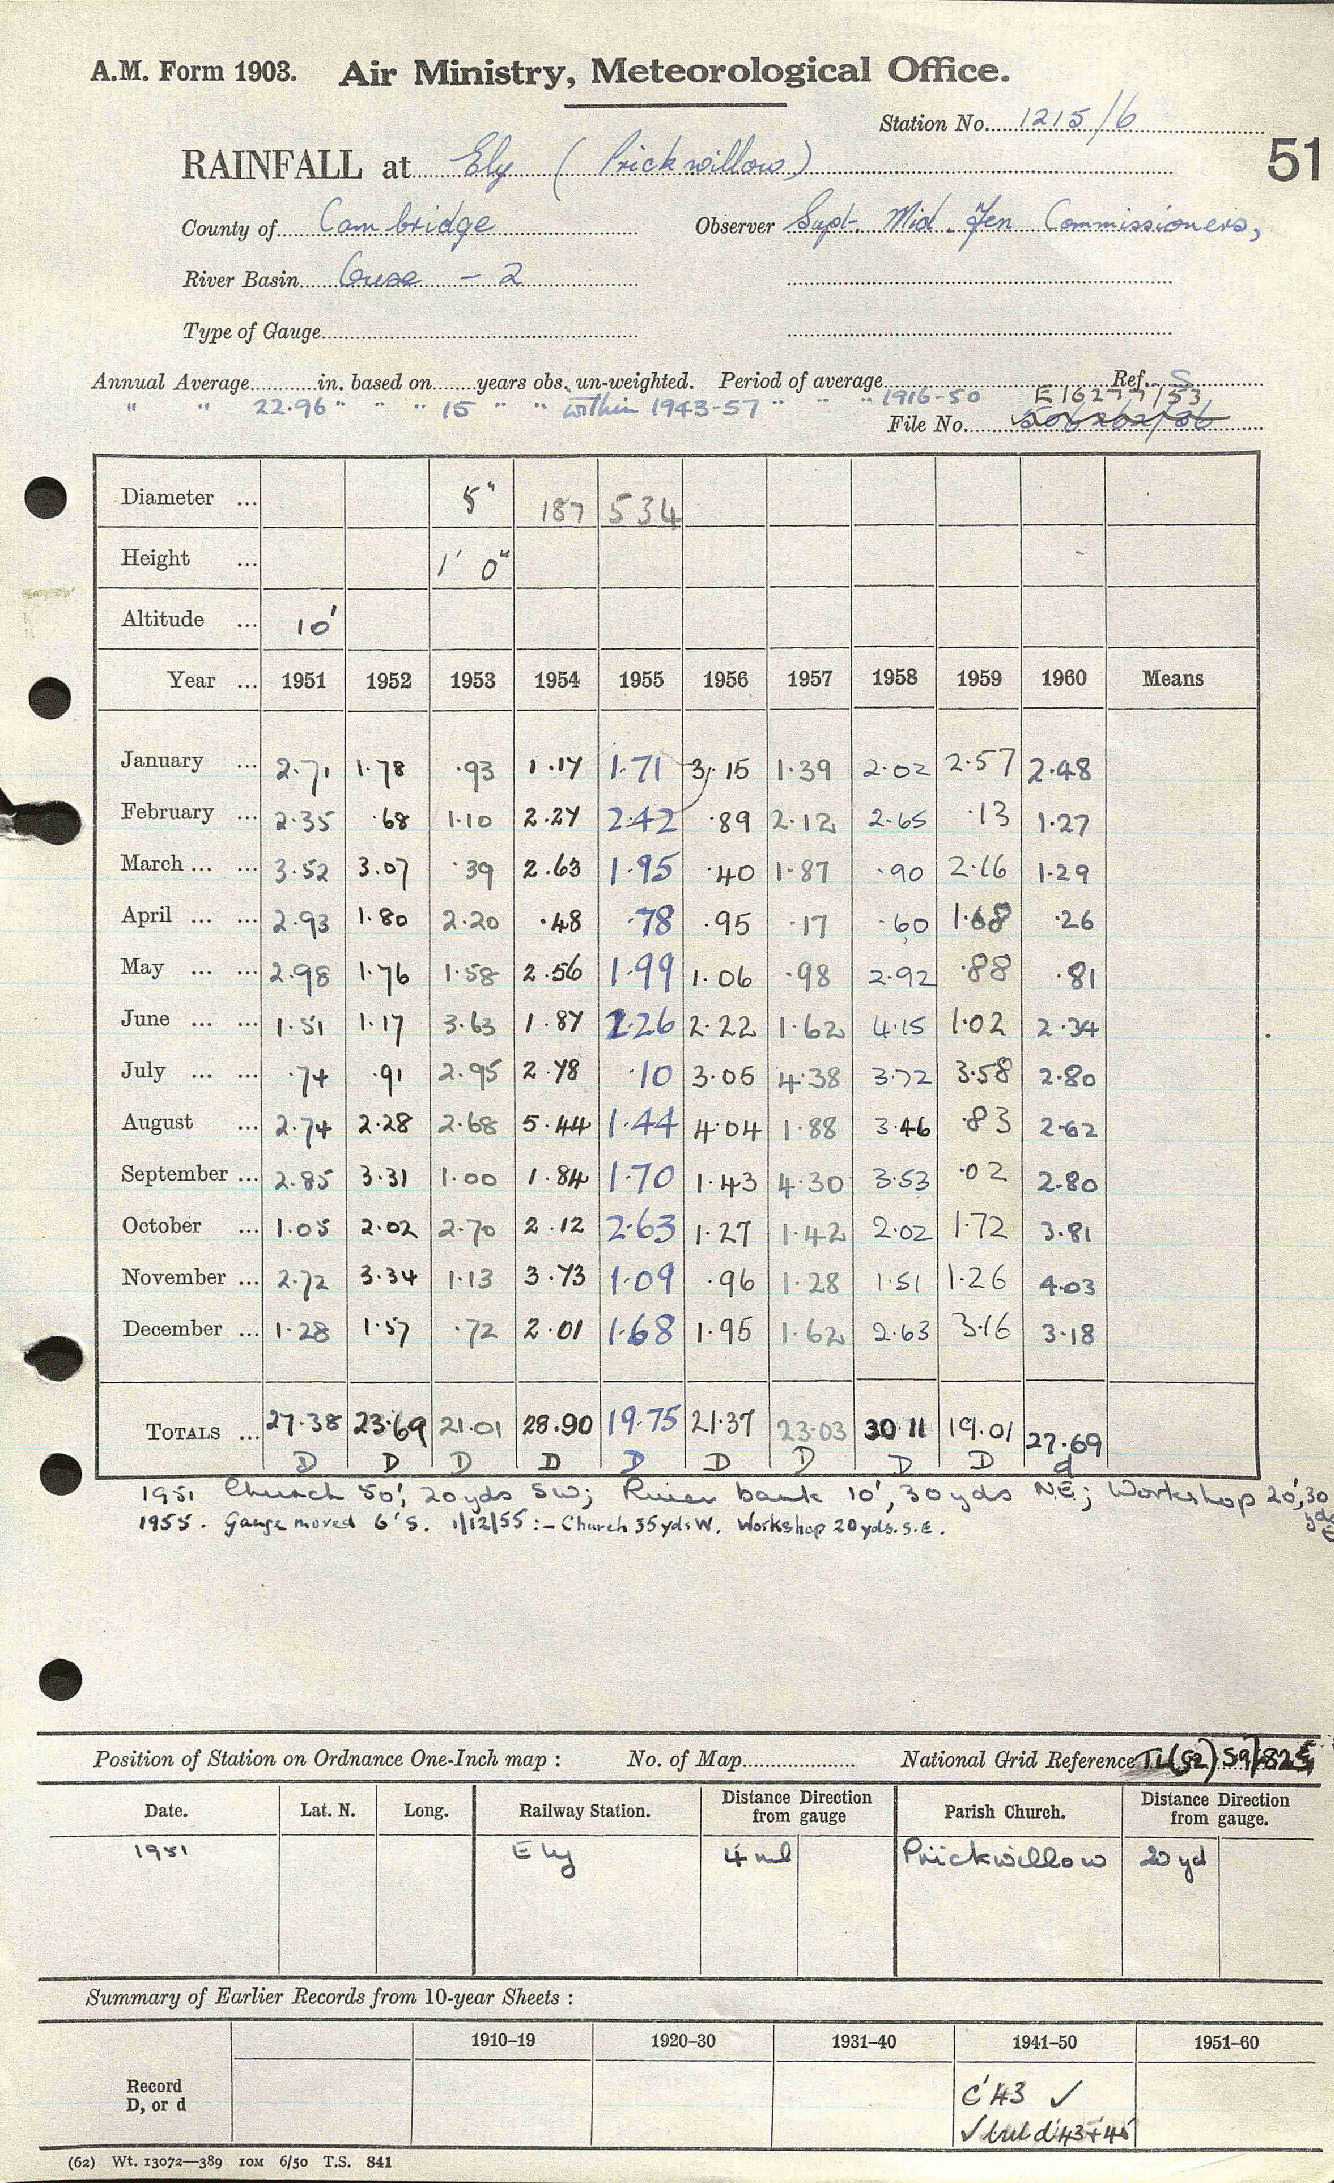 A.M. Form 1903. Air Ministry, Meteorological Office.
Station No. 1215/6
RAINFALL at Ely (Prickwillow) 51
County of Cambridge Observer Supt. Mid. Fen Commissioners,
River Basin Ouse - 2
Type of Gauge
Annual Average in. based on years obs. un-weighted. Period of average Ref. S
" " 22.96 " " " 15 " " within 1943-57 " " " 1916-50 E/6277/53
File No.
Diameter ... 5" 187 534
Height ... 1' 0"
Altitude ... 10'
Year ... 1951 1952 1953 1954 1955 1956 1957 1958 1959 1960 Means
January ... 2.71 1.78 .93 1.17 1.71 3.15 1.39 2.02 2.57 2.48
February ... 2.35 .68 1.10 2.27 2.42 .89 2.12 2.65 .13 1.27
March ... ... 3.52 3.07 .39 2.63 1.95 .40 1.87 .90 2.16 1.29
April ... ... 2.93 1.80 2.20 .48 .78 .95 .17 .60 1.68 .26
May ... ... 2.98 1.76 1.58 2.56 1.99 1.06 .98 2.92 .88 .81
June ... ... 1.51 1.17 3.63 1.87 2.26 2.22 1.62 4.15 1.02 2.34
July ... ... .74 .91 2.95 2.78 .10 3.05 4.38 3.72 3.58 2.80
August ... 2.74 2.28 2.68 5.44 1.44 4.04 1.88 3.46 .83 2.62
September ... 2.85 3.31 1.00 1.84 1.70 1.43 4.30 3.53 .02 2.80
October ... 1.05 2.02 2.70 2.12 2.63 1.27 1.42 2.02 1.72 3.81
November ... 2.72 3.34 1.13 3.73 1.09 .96 1.28 1.51 1.26 4.03
December ... 1.28 1.57 .72 2.01 1.68 1.95 1.62 2.63 3.16 3.18
TOTALS ... 27.38 23.69 21.01 28.90 19.75 21.37 23.03 30.11 19.01 27.69
D D D D D D D D D d
1951 Church 50', 20yds SW; River bank 10', 30yds NE; Workshop 20', 30 yds E
1955. Gauge moved 6' S. 1/12/55 :- Church 35yds W. Workshop 20yds. S.E.
Position of Station on Ordnance One-Inch map : No. of Map National Grid Reference TL(52) 597825
Date. Lat. N. Long. Railway Station. Distance from Direction gauge Parish Church. Distance from Direction gauge.
1951 Ely 4 ml Prickwillow 20 yd
Summary of Earlier Records from 10-year Sheets :
1910–19 1920–30 1931–40 1941–50 1951–60
Record D, or d C'43 ✓
✓ but d'43+45
(62) Wt. 13072—389 10M 6/50 T.S. 841